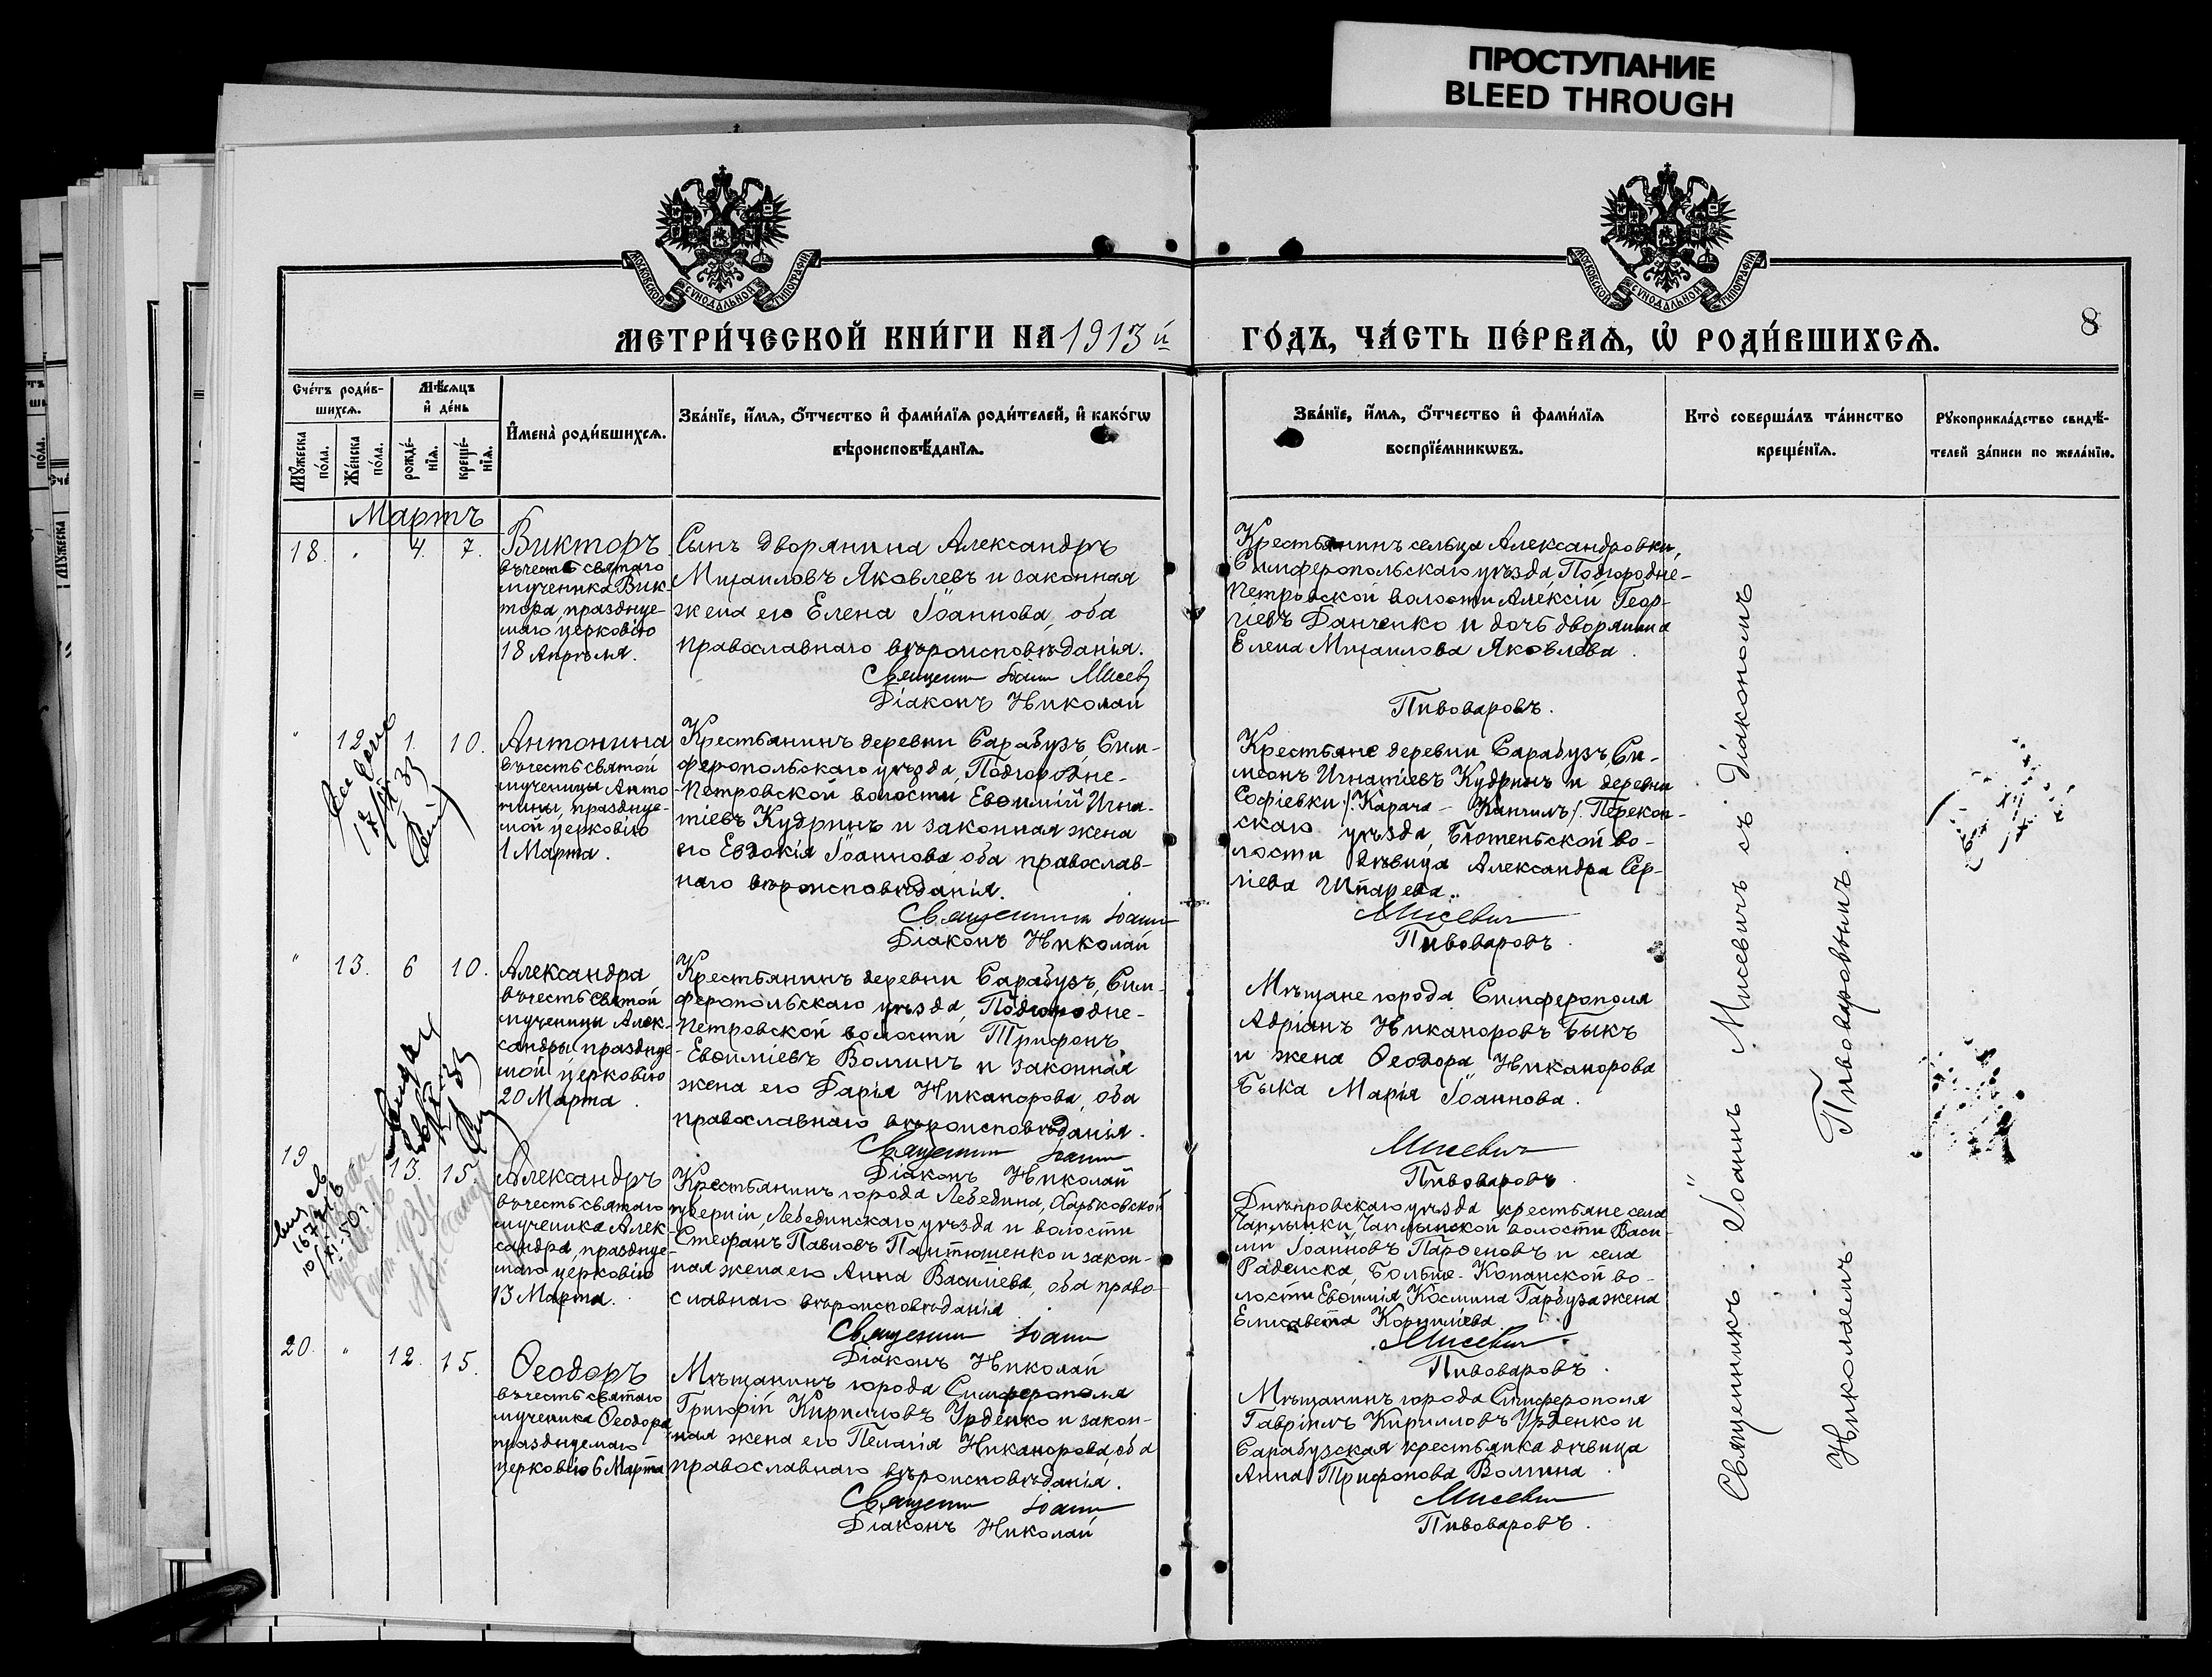 ПРОСТУПАНИЕ
BLEED THROUGH
МОСКОВСКОЙ СѴНОДАЛЬНОЙ ТИПОГРАФІИ
МОСКОВСКОЙ СѴНОДАЛЬНОЙ ТИПОГРАФІИ
МЕТРИ́ЧЕСКОЙ КНИ́ГИ НА 1913 й
ГО́ДЪ, ЧА́СТЬ ПЕ́РВАѦ, Ѡ҆ РОДИ́ВШИХСѦ.
8
Сче́тъ роди́в-
шихсѧ.
Мѣ́сѧцъ
и҆ де́нь
Мꙋ́жеска
по́ла.
Же́нска
по́ла.
рожде́-
нїѧ.
креще́-
нїѧ.
И҆мена̀ роди́вшихсѧ.
Зва́нїе, и҆́мѧ, ѻ҆́тчество и҆ фами́лїѧ роди́телей, и҆ како́гѡ
вѣроисповѣ́данїѧ.
Зва́нїе, и҆́мѧ, ѻ҆́тчество и҆ фами́лїѧ
воспрїе́мникѡвъ.
Кто̀ соверша́лъ та́инство
креще́нїѧ.
Рꙋкоприкла́дство свидѣ́-
телей за́писи по жела́нїю.
Мартъ
18. " 4. 7.
Викторъ
въ честь святаго
мученика Вик-
тора, празднуе-
маго церковію
18 Апрѣля.
Сынъ дворянина Александръ
Михаиловъ Яковлевъ и законная
жена его Елена Іоаннова, оба
православнаго вѣроисповѣданія.
Священник Іоанн Мисевич
Діаконъ Николай
Крестьянинъ сельца Александровки,
Симферопольскаго уѣзда, Подгородне-
Петровской волости Алексій Геор-
гіевъ Данченко и дочь дворянина
Елена Михаилова Яковлева.
Пивоваровъ.
" 12. 1. 10.
Антонина
въ честь святой
мученицы Анто-
нины, празднуе-
мой церковію
1 Марта.
Крестьянинъ деревни Сарабузъ, Сим-
феропольскаго уѣзда, Подгородне-
Петровской волости Евѳимій Игна-
тіевъ Кудринъ и законная жена
его Евдокія Іоаннова, оба православ-
наго вѣроисповѣданія.
Священник Іоанн
Діаконъ Николай
Крестьяне деревни Сарабузъ, Си-
меонъ Игнатіевъ Кудринъ и деревни
Софіевки /:Карача-Кангилъ:/ Перекоп-
скаго уѣзда, Бютеньской во-
лости дѣвица Александра Сер-
гіева Шпарева.
Мисевич
Пивоваровъ.
" 13. 6 10.
Александра
въ честь святой
мученицы Алек-
сандры, празднуе-
мой церковію
20 Марта.
Крестьянинъ деревни Сарабузъ, Сим-
феропольскаго уѣзда, Подгородне-
Петровской волости Трифонъ
Евѳиміевъ Волминъ и законная
жена его Дарія Никанорова, оба
православнаго вѣроисповѣданія.
Священник Іоанн
Діаконъ Николай
Мѣщане города Симферополя
Адріанъ Никаноровъ Быкъ
и жена Ѳеодора Никанорова
Быка Марія Іоаннова.
Мисевич
Пивоваровъ.
19 13. 15.
Александръ
въ честь святаго
мученика Алек-
сандра, празднуе-
маго церковію
13 Марта.
Крестьянинъ города Лебедина, Харьковской
губерніи, Лебединскаго уѣзда и волости
Стефанъ Павловъ Пантюшенко и закон-
ная жена его Анна Василіева, оба право-
славнаго вѣроисповѣданія.
Священник Іоанн
Діаконъ Николай
Днѣпровскаго уѣзда крестьяне села
Чаплынки, Чаплынской волости Васи-
лій Іоанновъ Парѳеновъ и села
Раденска, Больше-Копанской во-
лости Евѳимія Космина Гарбуза жена
Елисавета Корниліева.
Мисевич
Пивоваровъ.
20. " 12. 15.
Ѳеодоръ
въ честь святаго
мученика Ѳеодора
празднуемаго
церковію 6 Марта
Мѣщанинъ города Симферополя
Григорій Кирилловъ Урденко и закон-
ная жена его Пелагія Никанорова, оба
православнаго вѣроисповѣданія.
Священник Іоанн
Діаконъ Николай
Мѣщанинъ города Симферополя
Гавріилъ Кирилловъ Урденко и
Сарабузская крестьянка дѣвица
Анна Трифонова Волмина.
Мисевич
Пивоваровъ.
Священникъ Іоаннъ Мисевичъ съ Діакономъ
Николаемъ Пивоваровымъ.